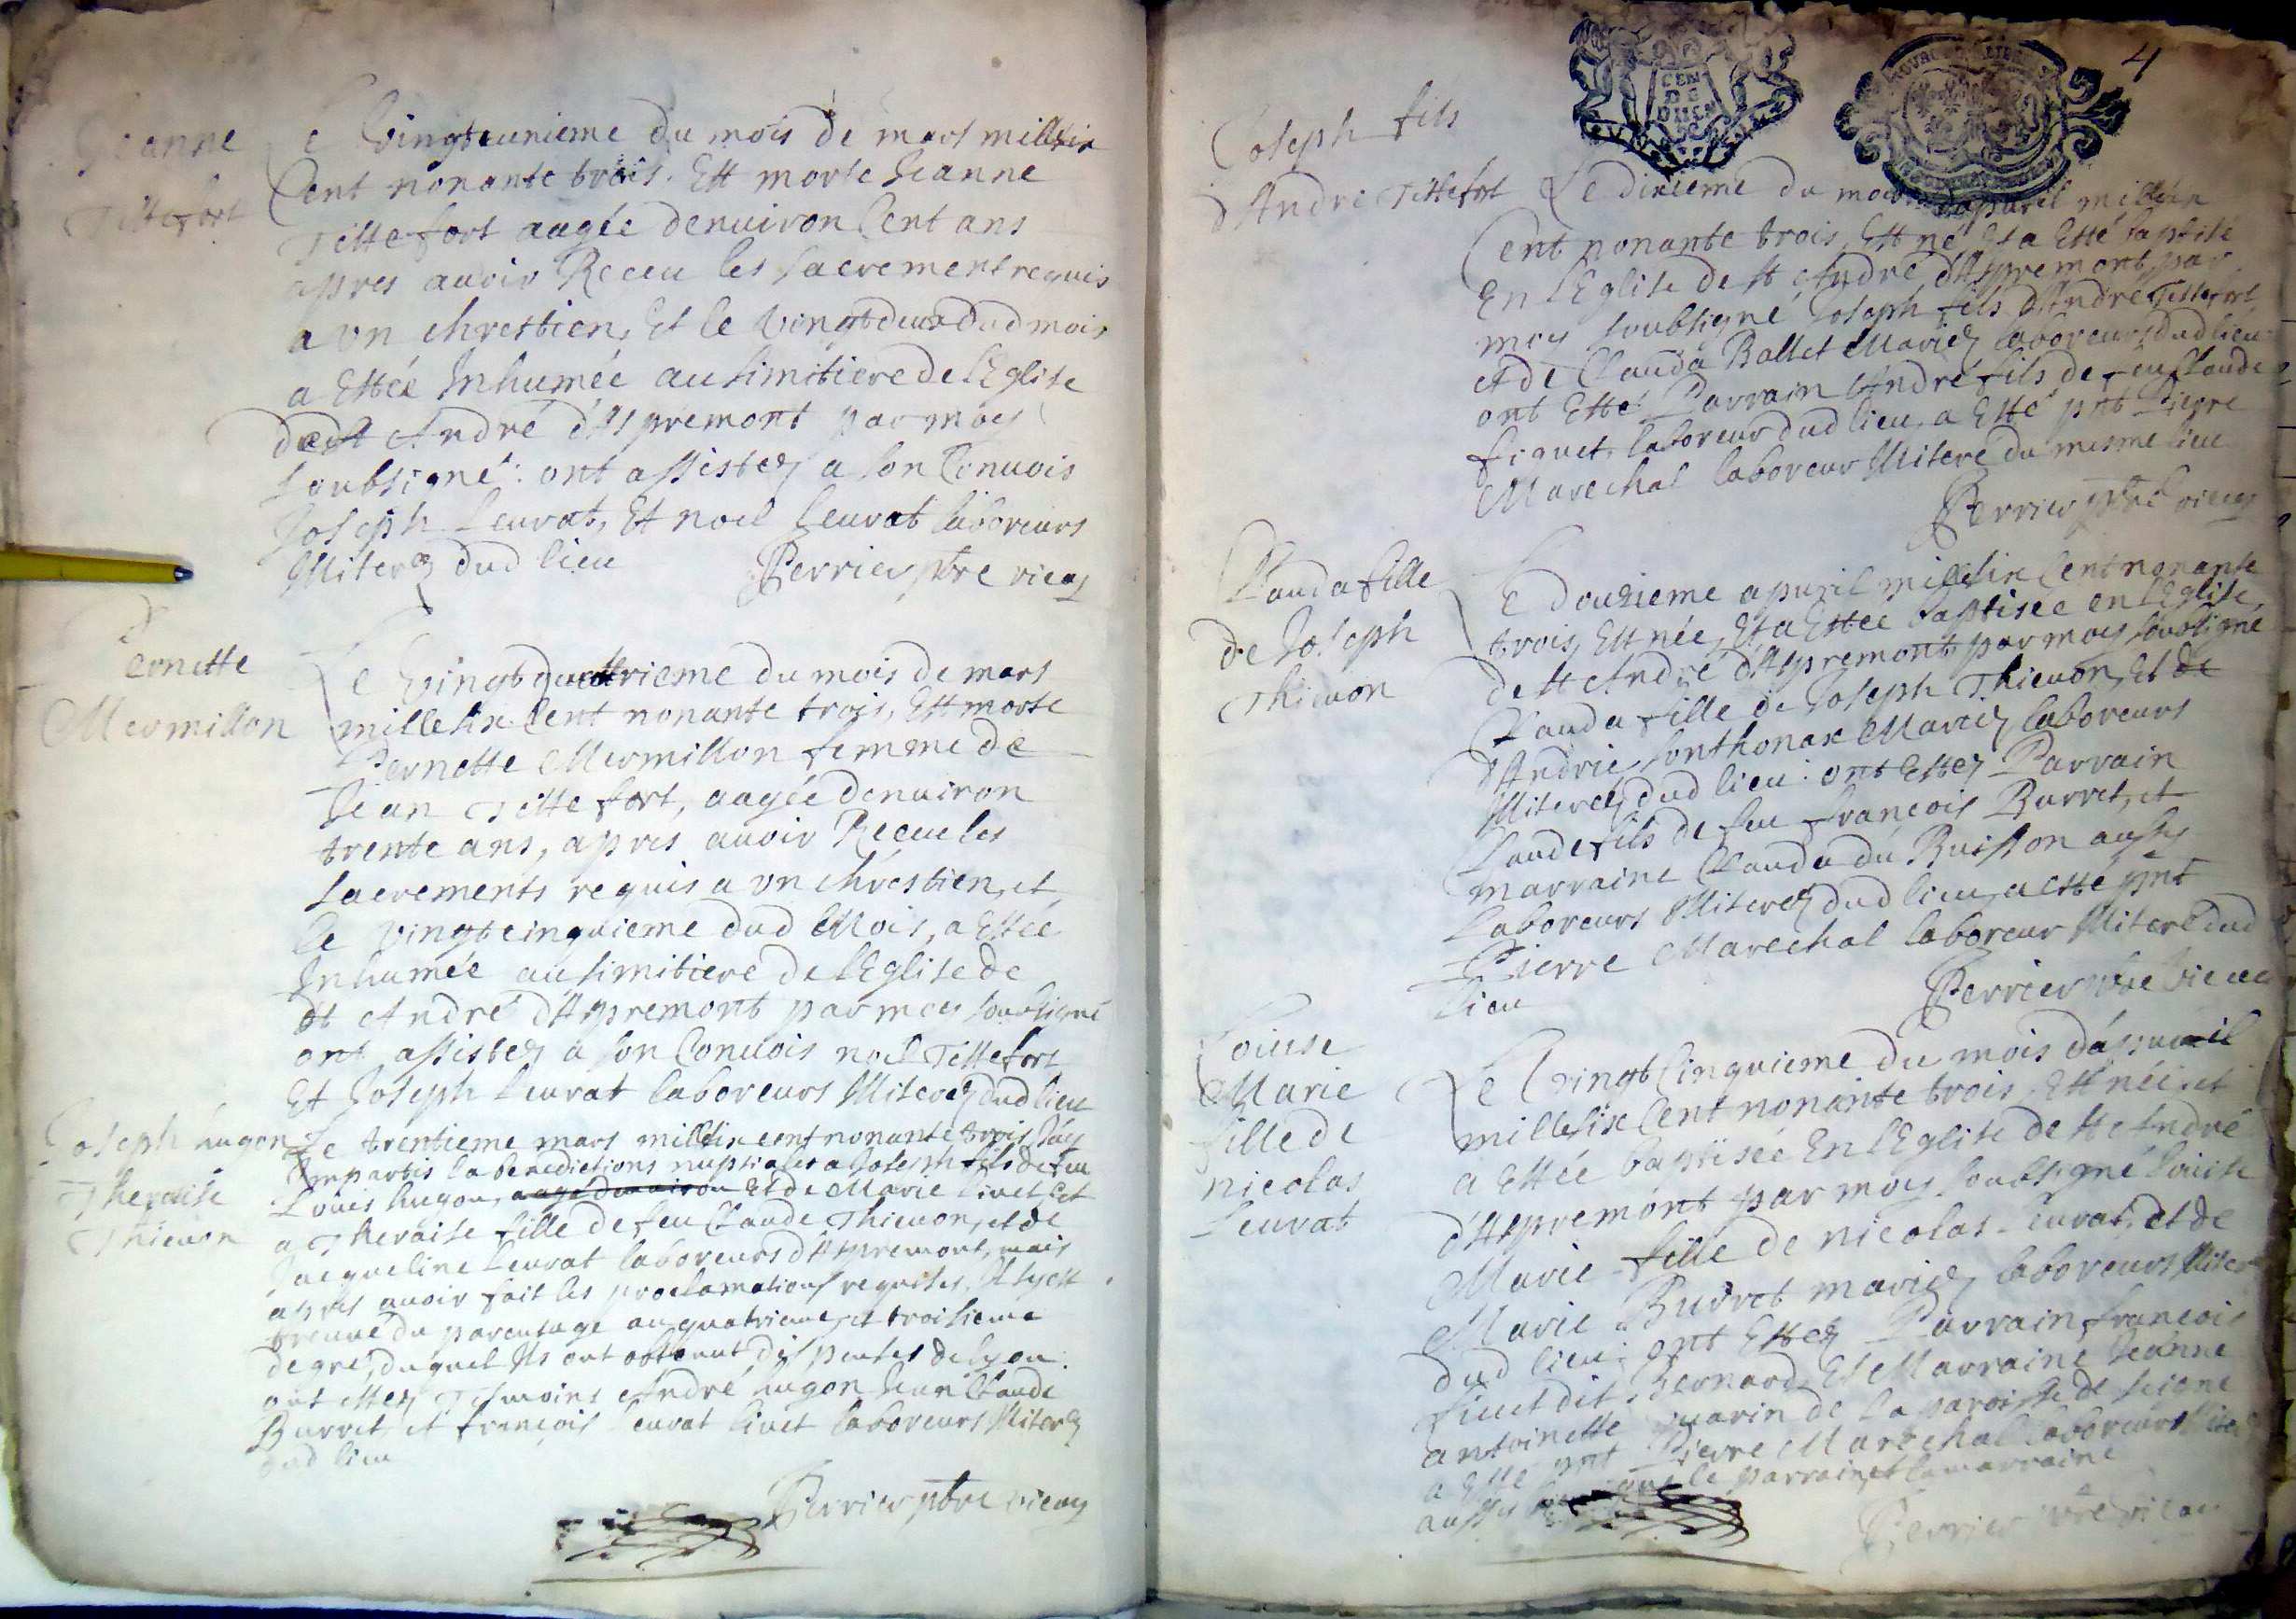 Jeanne
Tittefort
Le vingteunieme du mois de mars millesix
Cent nonante trois. Est morte Jeanne
Tittefort aagée denuiron Cent ans
apres auoir Receu les sacrement requis
a vn chrestien, Et le vingtdeux dud mois
a Estée Inhumée au simitiere de lEglise
de st André d'Aspremont par moy
soubsigné: ont assistez a son Conuois
Joseph Leurat, Et noel Leurat laboreurs
Illiterez dud lieu
Perrier pbre vicay
Pernette
Mermillon
Le vingtquattrieme du mois de mars
millesix Cent nonante trois, Est morte
Pernette Mermillon femme de
Jean Tittefort, aagée denuiron
trente ans, apres auoir Receu les
sacrements requis a vn chrestien, et
le vingtcinquieme dud Mois, a Estée
Inhumée au simitiere de lEglise de
st André d'Aspremont par moy soubsigné
ont assistez a son Conuois noel Tittefort
Et Joseph Leurat laboreurs Illiterez dud lieu
Joseph hugon
Theraise
Thieuon
Le trentieme mars millesix cent nonante trois J'ay
Impartis la benedictions nuptiales a Joseph fils de feu
Louis hugon, aagé denuiron Et de Marie liuet Et
a Theraise fille de feu Claude Thieuon, et de
Jacqueline Leurat laboreurs d'Aspremont, mais
apres auoir fait les proclamations requises, Il syest
treuué du parentage au quatrieme, et troisieme
degré, duquel Ils ont obtenut dispenses de lyon.
ont Estez Tesmoins André hugon Jean Claude
Burret, et françois Leurat liuet laboreurs Illiterez
dud lieu
Perrier pbre vicay
4
CEN
DE
DIJON
Joseph fils
d'André Tittefort
Le dixieme du mois d'apuril millesix
Cent nonante trois, Est né, Et a Esté baptisé
En l'Eglise de st André d'Aspremont, par
moy soubsigné Joseph fils d'André Tittefort
et de Clauda Ballet Mariez laboreurs dud lieu
ont Esté: Parrain André fils de feu Claude
fiquet, laboreur dud lieu, a Esté pnt Pierre
Marechal laboreur Illiteré du mesme lieu
Perrier pbre vicay
Clauda fille
de Joseph
Thieuon
Le douzieme apuril millesix Cent nonante
trois, Est née, Et a Estée baptisée en lEglise
de st André d'Aspremont, par moy soubsigné
Clauda fille de Joseph Thieuon, Et de
d'Andrie Sonthonax Mariez laboreurs
Illiterez dud lieu: ont Estez Parrain
Claude fils de feu françois Burret, et
marraine Clauda du Buisson aussy
laboreurs Illiterez dud lieu, a esté pnt
Pierre Marechal laboreur Illiteré dud
lieu
Perrier pbre vicay
Louise
Marie
fille de
nicolas
Leurat
Le vingtCinquieme du mois d'apuril
millesix Cent nonante trois, Est née, et
a Estée baptisée En lEglise de st André
d'Aspremont par moy soubsigné Louise
Marie fille de nicolas Leurat, et de
Marie Burret mariez laboreurs Illiterez
dud lieu: ont Estez Parrain françois
liuet dit Bernard, Et Marraine Jeanne
antoinette de la paroisse de
a Esté pnt Pierre Marechal laboreurs
aussy que le parrain, et la marraine
Perrier pbre vicay